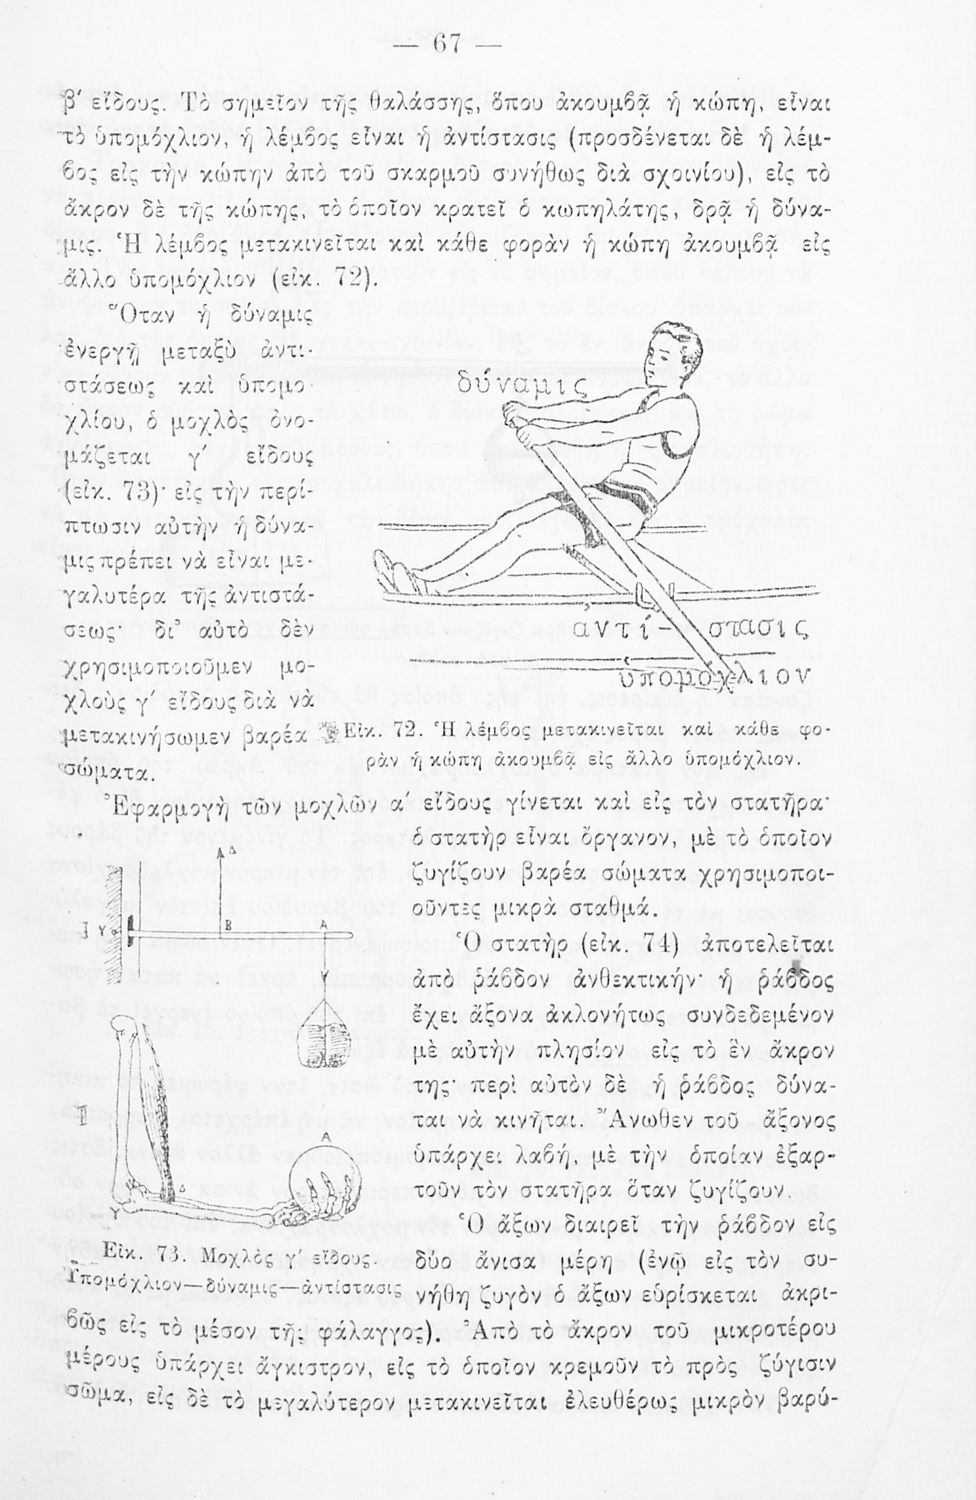 — 67 —
β′ εἴδους. Τὸ σημεῖον τῆς θαλάσσης, ὅπου ἀκουμβᾷ ἡ κώπη, εἶναι
τὸ ὑπομόχλιον, ἡ λέμβος εἶναι ἡ ἀντίστασις (προσδένεται δὲ ἡ λέμ-
βος εἰς τὴν κώπην ἀπὸ τοῦ σκαρμοῦ συνήθως διὰ σχοινίου), εἰς τὸ
ἄκρον δὲ τῆς κώπης, τὸ ὁποῖον κρατεῖ ὁ κωπηλάτης, δρᾷ ἡ δύνα-
μις. Ἡ λέμβος μετακινεῖται καὶ κάθε φορὰν ἡ κώπη ἀκουμβᾷ εἰς
ἄλλο ὑπομόχλιον (εἰκ. 72).
Ὅταν ἡ δύναμις
ἐνεργῇ μεταξὺ ἀντι-
στάσεως καὶ ὑπομο
χλίου, ὁ μοχλὸς ὀνο-
μάζεται γ′ εἴδους
(εἰκ. 73)· εἰς τὴν περί-
πτωσιν αὐτὴν ἡ δύνα-
μις πρέπει νὰ εἶναι με-
γαλυτέρα τῆς ἀντιστά-
σεως· δι᾽ αὐτὸ δὲν
χρησιμοποιοῦμεν μο-
χλοὺς γ′ εἴδους διὰ νὰ
μετακινήσωμεν βαρέα
σώματα.
δύναμις
αντί-στασις
ὑπομόχλιον
Εἰκ. 72. Ἡ λέμβος μετακινεῖται καὶ κάθε φο-
ρὰν ἡ κώπη ἀκουμβᾷ εἰς ἄλλο ὑπομόχλιον.
Ἐφαρμογὴ τῶν μοχλῶν α′ εἴδους γίνεται καὶ εἰς τὸν στατῆρα·
ὁ στατὴρ εἶναι ὄργανον, μὲ τὸ ὁποῖον
ζυγίζουν βαρέα σώματα χρησιμοποι-
οῦντες μικρὰ σταθμά.
Ὁ στατὴρ (εἰκ. 74) ἀποτελεῖται
ἀπὸ ῥάβδον ἀνθεκτικήν· ἡ ῥάβδος
ἔχει ἄξονα ἀκλονήτως συνδεδεμένον
μὲ αὐτὴν πλησίον εἰς τὸ ἓν ἄκρον
της· περὶ αὐτὸν δὲ ἡ ῥάβδος δύνα-
ται νὰ κινῆται. Ἄνωθεν τοῦ ἄξονος
ὑπάρχει λαβή, μὲ τὴν ὁποίαν ἐξαρ-
τοῦν τὸν στατῆρα ὅταν ζυγίζουν.
Ὁ ἄξων διαιρεῖ τὴν ῥάβδον εἰς
δύο ἄνισα μέρη (ἐνῷ εἰς τὸν συ-
νήθη ζυγὸν ὁ ἄξων εὑρίσκεται ἀκρι-
Δ
I Υ Β Α
II
Α
Δ
Υ
Εἰκ. 73. Μοχλὸς γ′ εἴδους.
Ὑπομόχλιον—δύναμις—ἀντίστασις
βῶς εἰς τὸ μέσον τῆς φάλαγγος). Ἀπὸ τὸ ἄκρον τοῦ μικροτέρου
μέρους ὑπάρχει ἄγκιστρον, εἰς τὸ ὁποῖον κρεμοῦν τὸ πρὸς ζύγισιν
σῶμα, εἰς δὲ τὸ μεγαλύτερον μετακινεῖται ἐλευθέρως μικρὸν βαρύ-